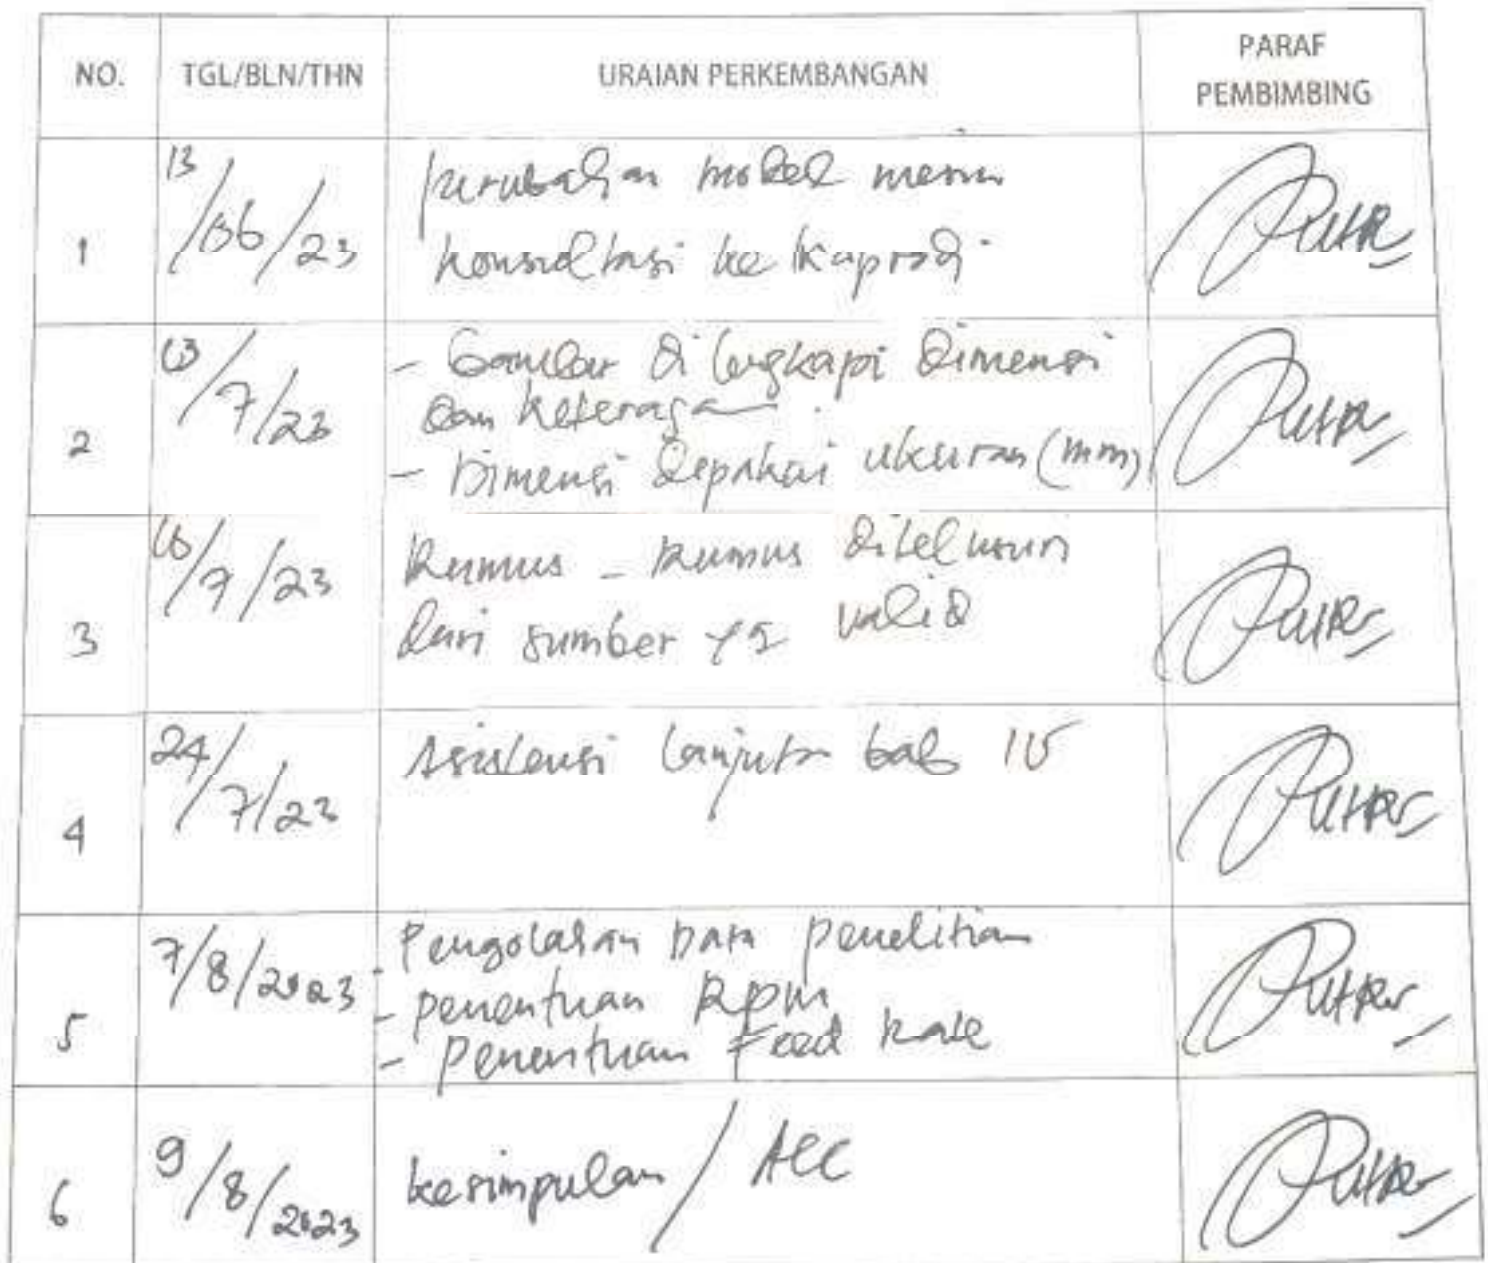 NO. TGL/BLN/THN URAIAN PERKEMBANGAN PARAF
PEMBIMBING
1 13/06/23 perubahan model mesin
konsultasi ke Kaprodi
2 /7/23 - Gambar dilengkapi dimensi
dan keterangan.
- Dimensi dipakai ukuran (mm)
3 /7/23 Rumus - Rumus ditelusuri
dari sumber yg valid
4 24/7/23 Asistensi lanjutan bab IV
5 7/8/2023 - Pengolahan Data penelitian
- penentuan Rpm
- Penentuan Feed Rate
6 9/8/2023 kesimpulan / Acc